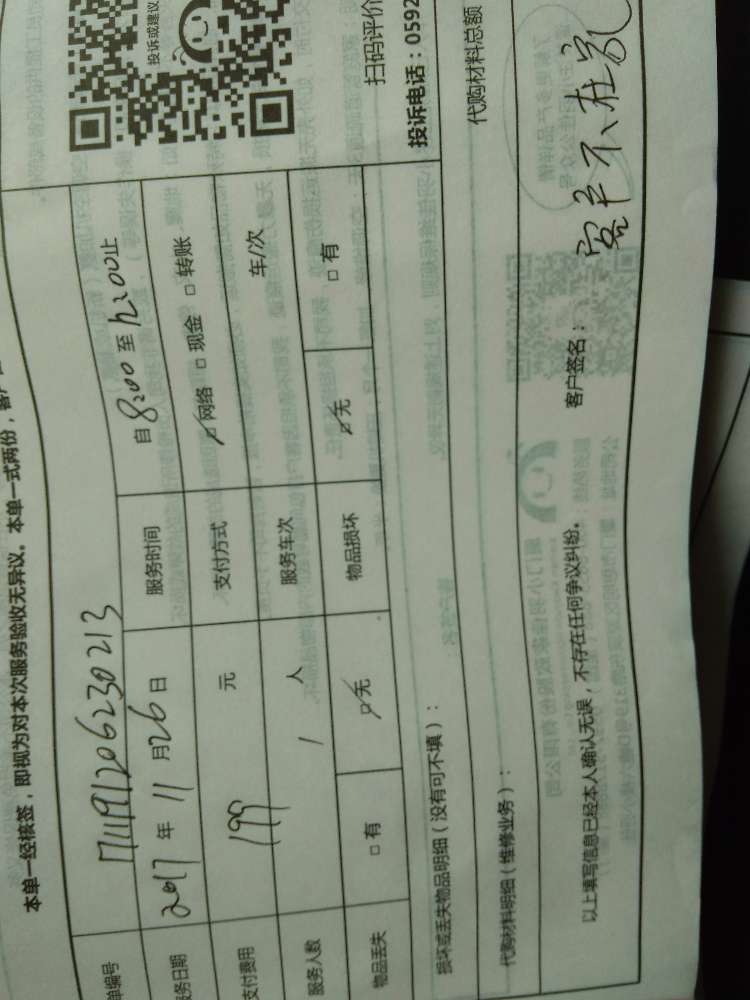 本单一经核签，即视为对本次服务验收无异议。本单一式两份，客户
单编号 711191206230213
务日期 2017 年 11 月 26 日 服务时间 自 8:00 至 12:00 止
支付费用 199 元 支付方式 ☑网络 □现金 □转账
服务人数 1 人 服务车次 车/次
物品丢失 □有 ☑无 物品损坏 ☑无 □有
投诉或建议
扫码评价
投诉电话：0592
损坏或丢失物品明细（没有可不填）：
代购材料明细（维修业务）：
代购材料总额
以上填写信息已经本人确认无误，不存在任何争议纠纷。
客户签名：客户不在家